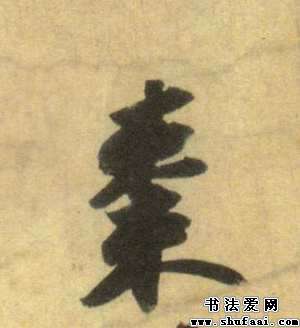 棗
书法爱网
www.shufaai.com